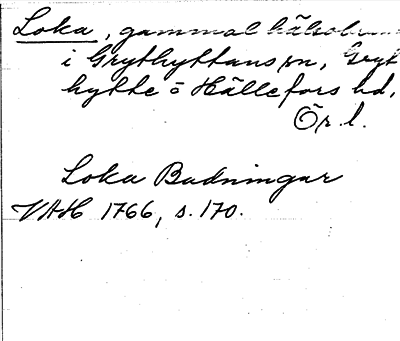 Loka, gammal hälsobrunn
i Grythyttans sn, Gryt
hytte o Hällefors hd,
Ör. l.
Loka Badningar
VAH 1766, s. 170.